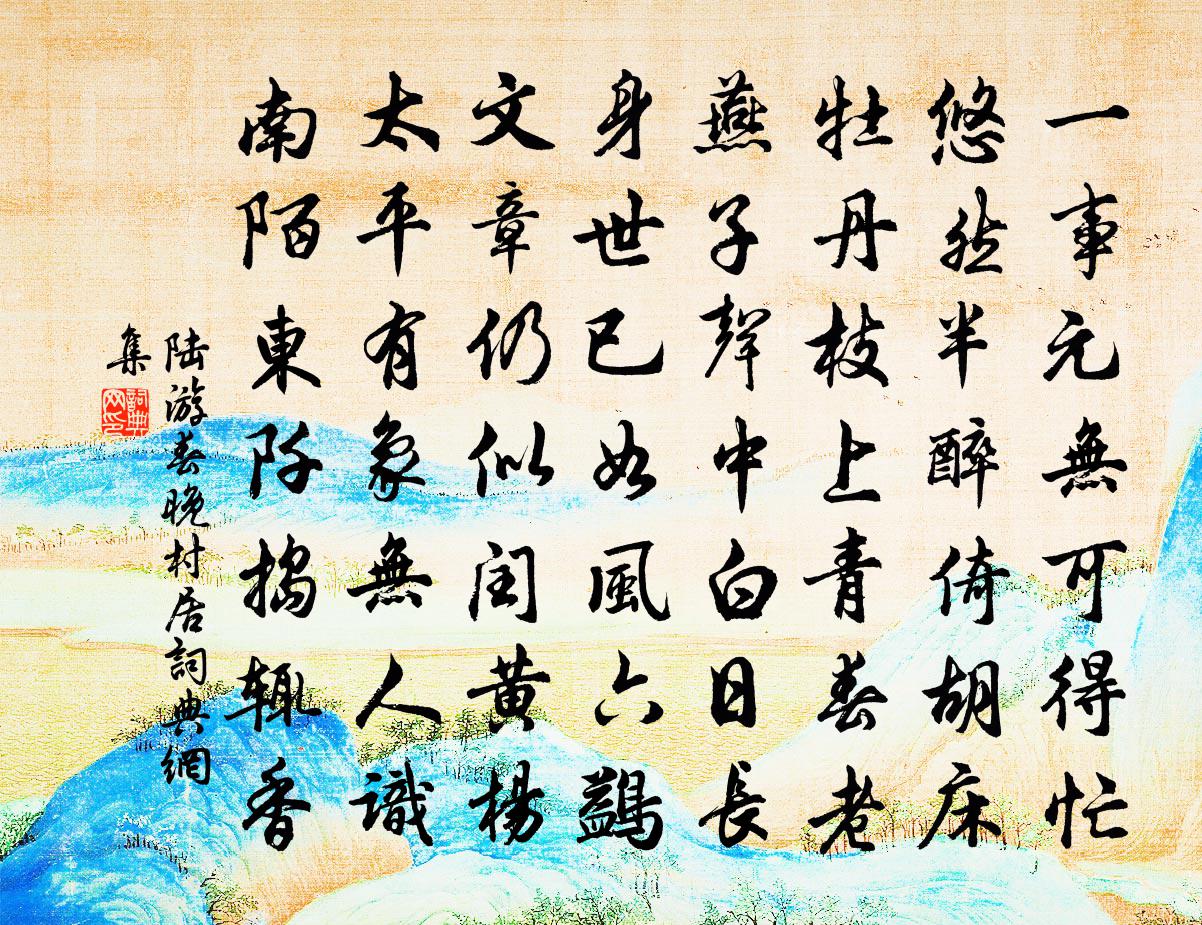 一事元無可得忙
悠然半醉倚胡床
牡丹枝上青春老
燕子聲中白日長
身世已如風六鷁
文章仍似閏黃楊
太平有象無人識
南陌東阡搗輒香
陸游春晚村居詞典網
集
詞典网印